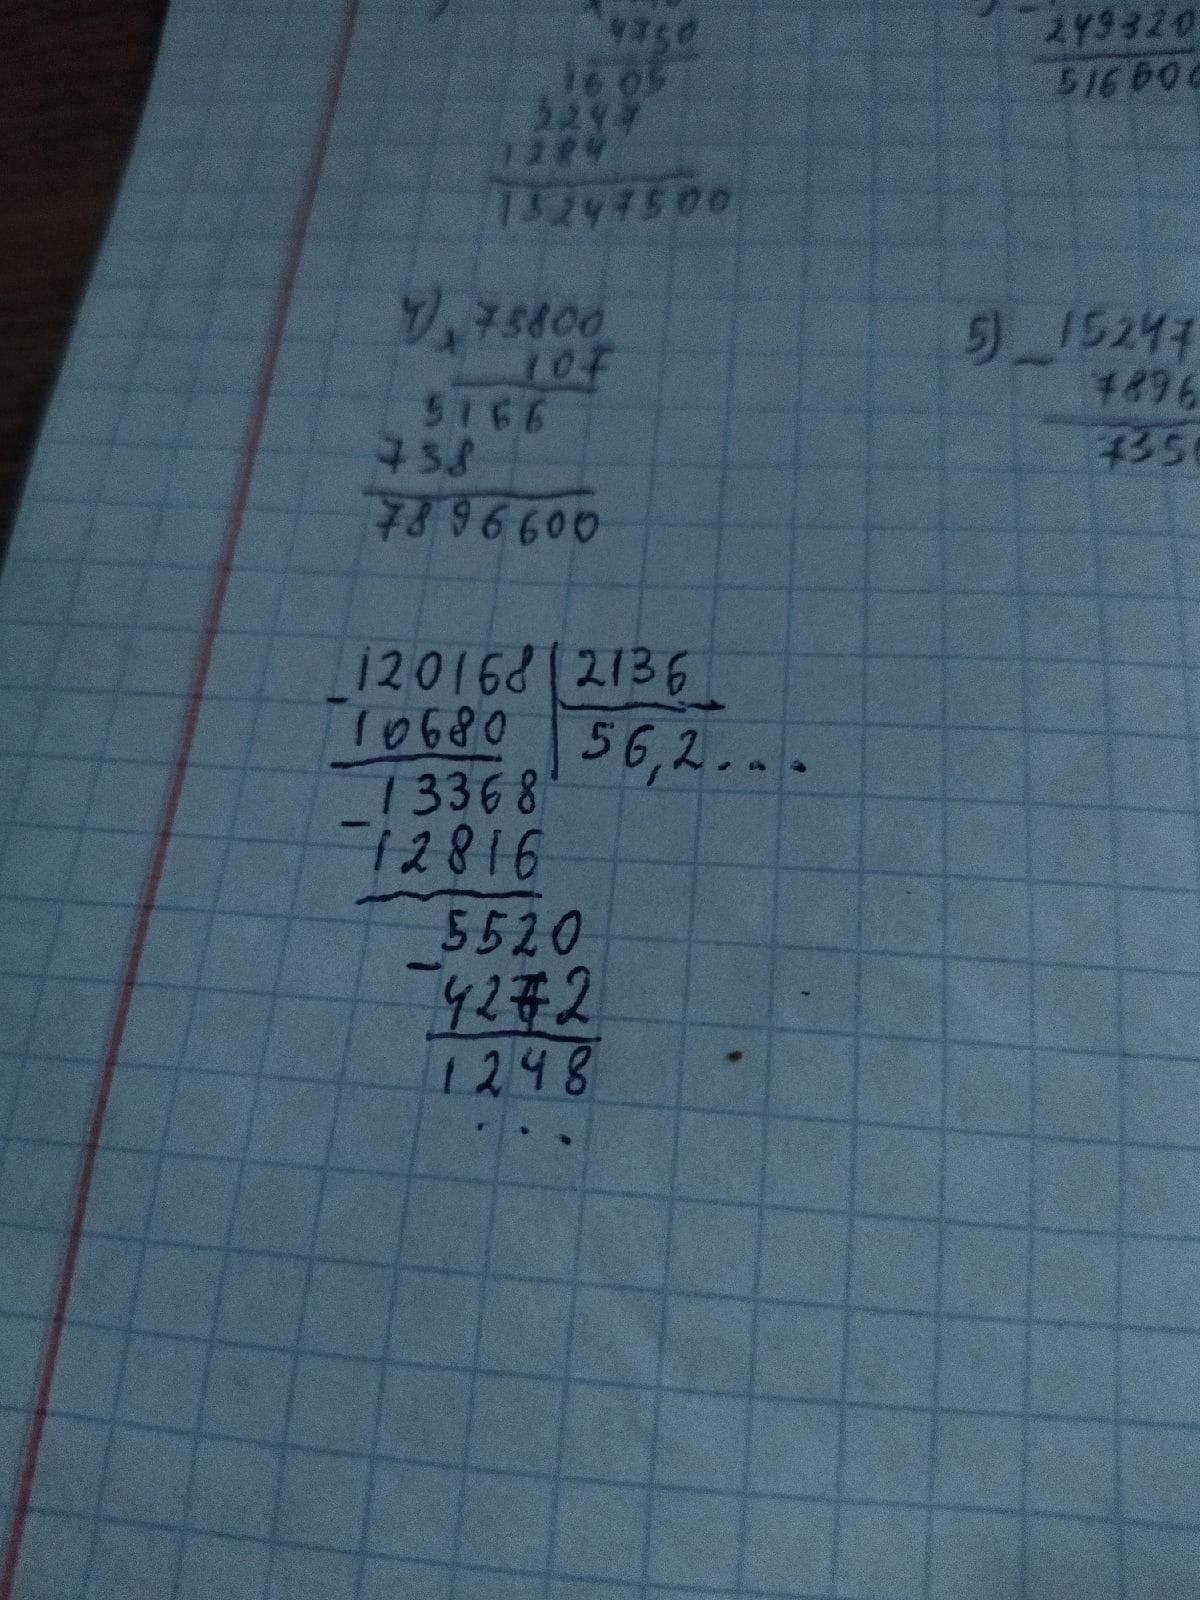 4750
1605
2247
1284
15247500
249320
516600
4) × 73800
107
5166
738
7896600
5) - 15247
7896
735
- 120168 | 2136
10680 | 56,2...
- 13368
12816
- 5520
4272
1248
...